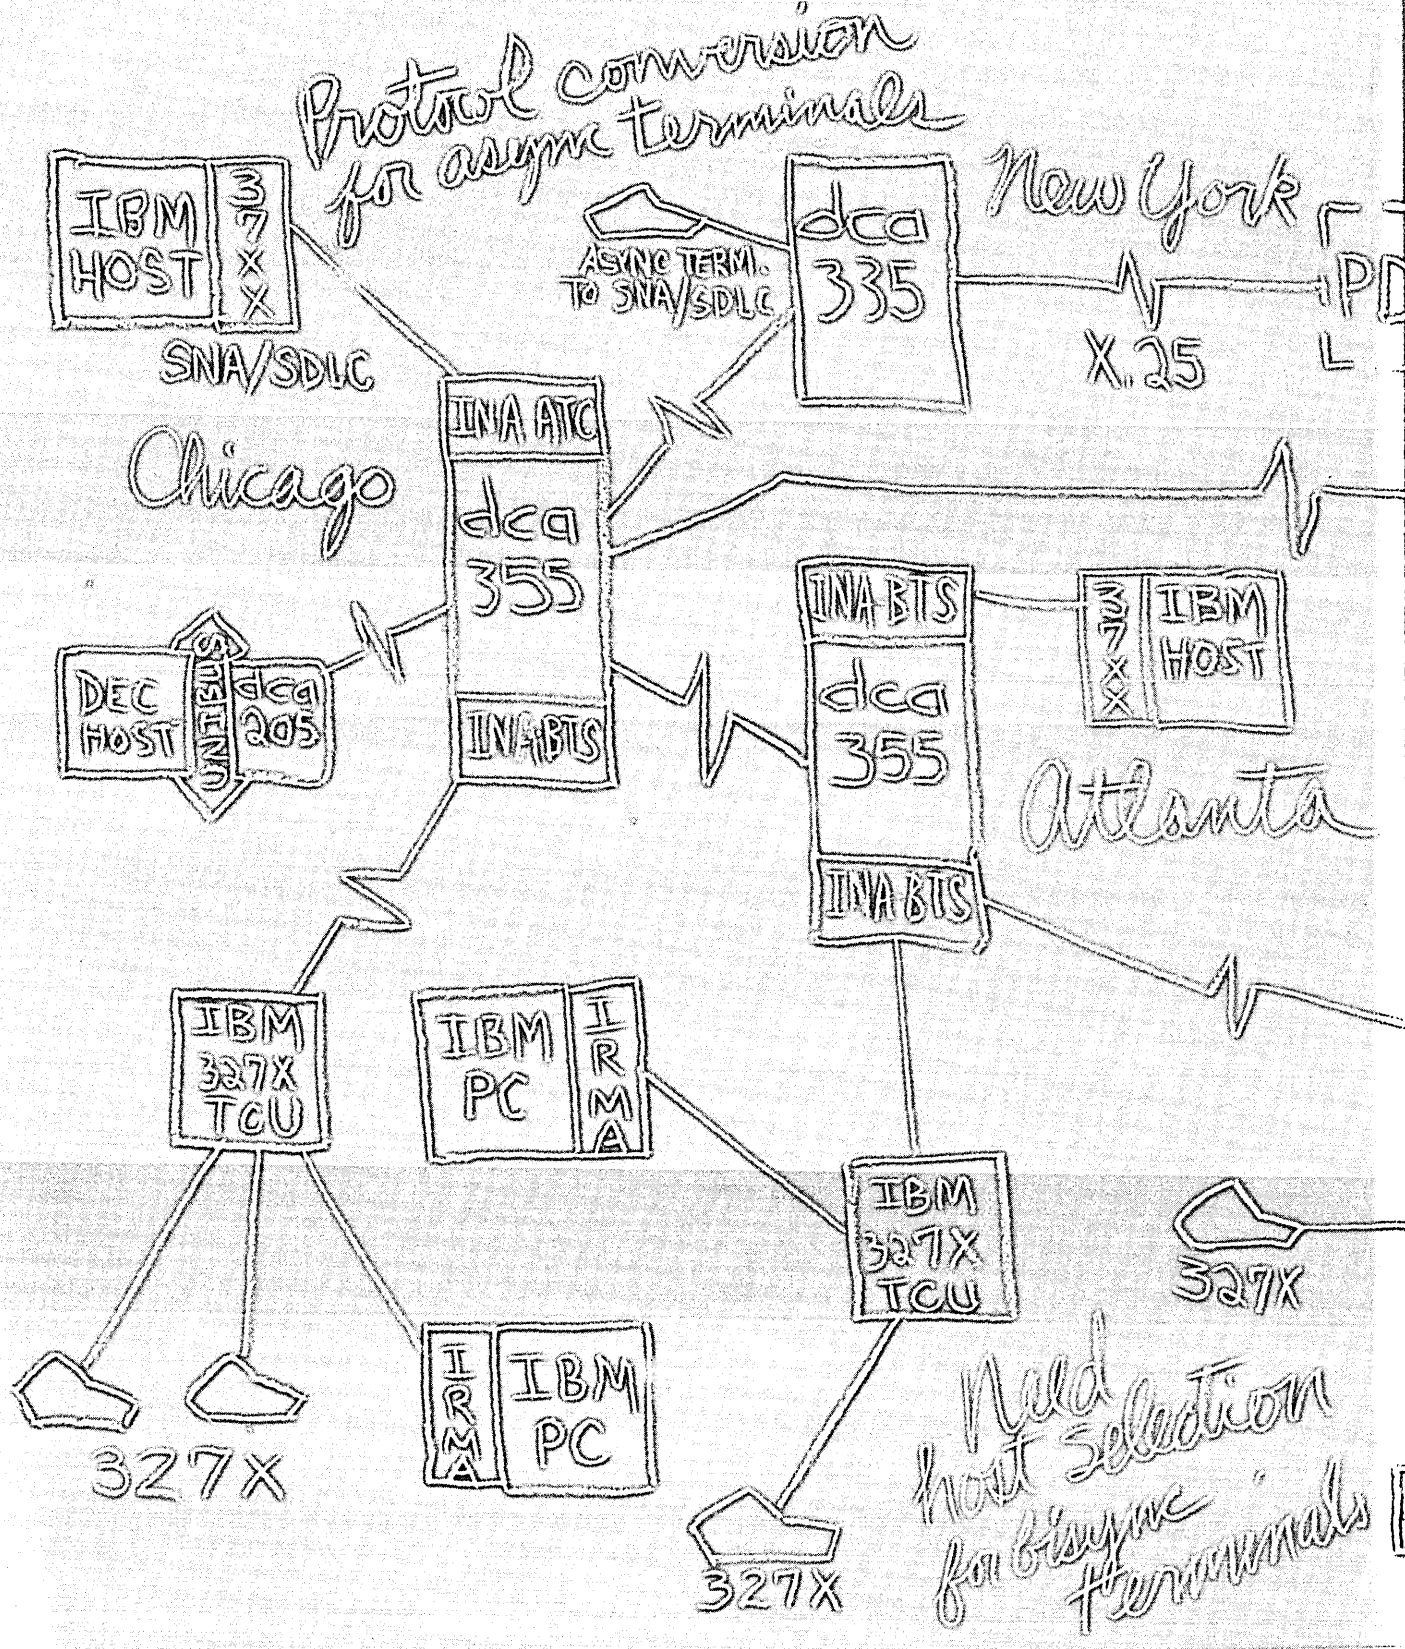 Protocol conversion
for async terminals
IBM
HOST
37XX
SNA/SDLC
Chicago
ASYNC TERM.
TO SNA/SDLC
dca
335
New York
X.25
PD
INA ATC
dca
355
INA BTS
DEC
HOST
UNIBUS
dca
205
INA BTS
dca
355
INA BTS
37XX
IBM
HOST
Atlanta
IBM
327X
TCU
IBM
PC
IRMA
327X
IRMA
IBM
PC
IBM
327X
TCU
327X
327X
Need
host selection
for bisync
terminals